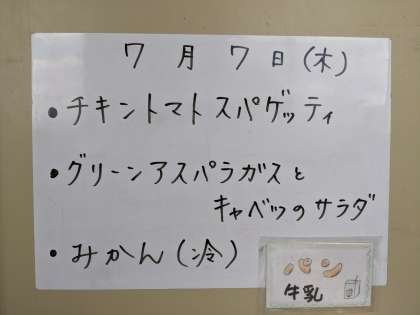 7月7日(木)
・チキントマトスパゲッティ
・グリーンアスパラガスと
キャベツのサラダ
・みかん(冷)
パン
牛乳